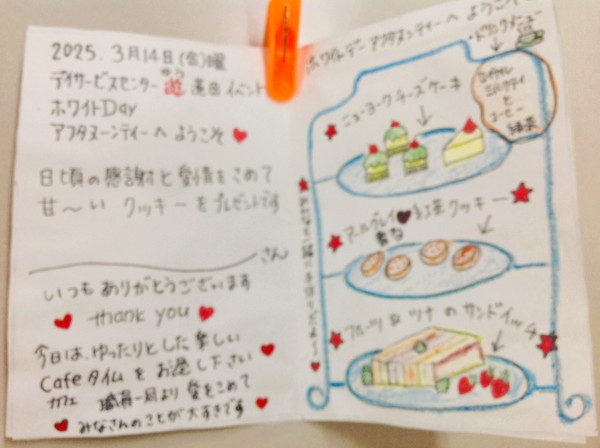 2025. 3月14日(金)曜
デイサービスセンター 遊 蓮田 イベント
ゆう
ホワイトDay
アフタヌーンティーへ ようこそ
日頃の感謝と愛情をこめて
甘〜い クッキーをプレゼントです
さん
いつも ありがとうございます
thank you
今日は、ゆったりとした楽しい
Cafeタイムをお過し下さい
カフェ 職員一同より 愛をこめて
みなさんのことが大すきです
ホワイトデー アフタヌーンティーへ ようこそ
・ドリンクメニュー
ロイヤル
ミルクティ
と
コーヒー
緑茶
ニューヨークチーズケーキ
アールグレイ 紅茶クッキー
フルーツ&ツナのサンドイッチ